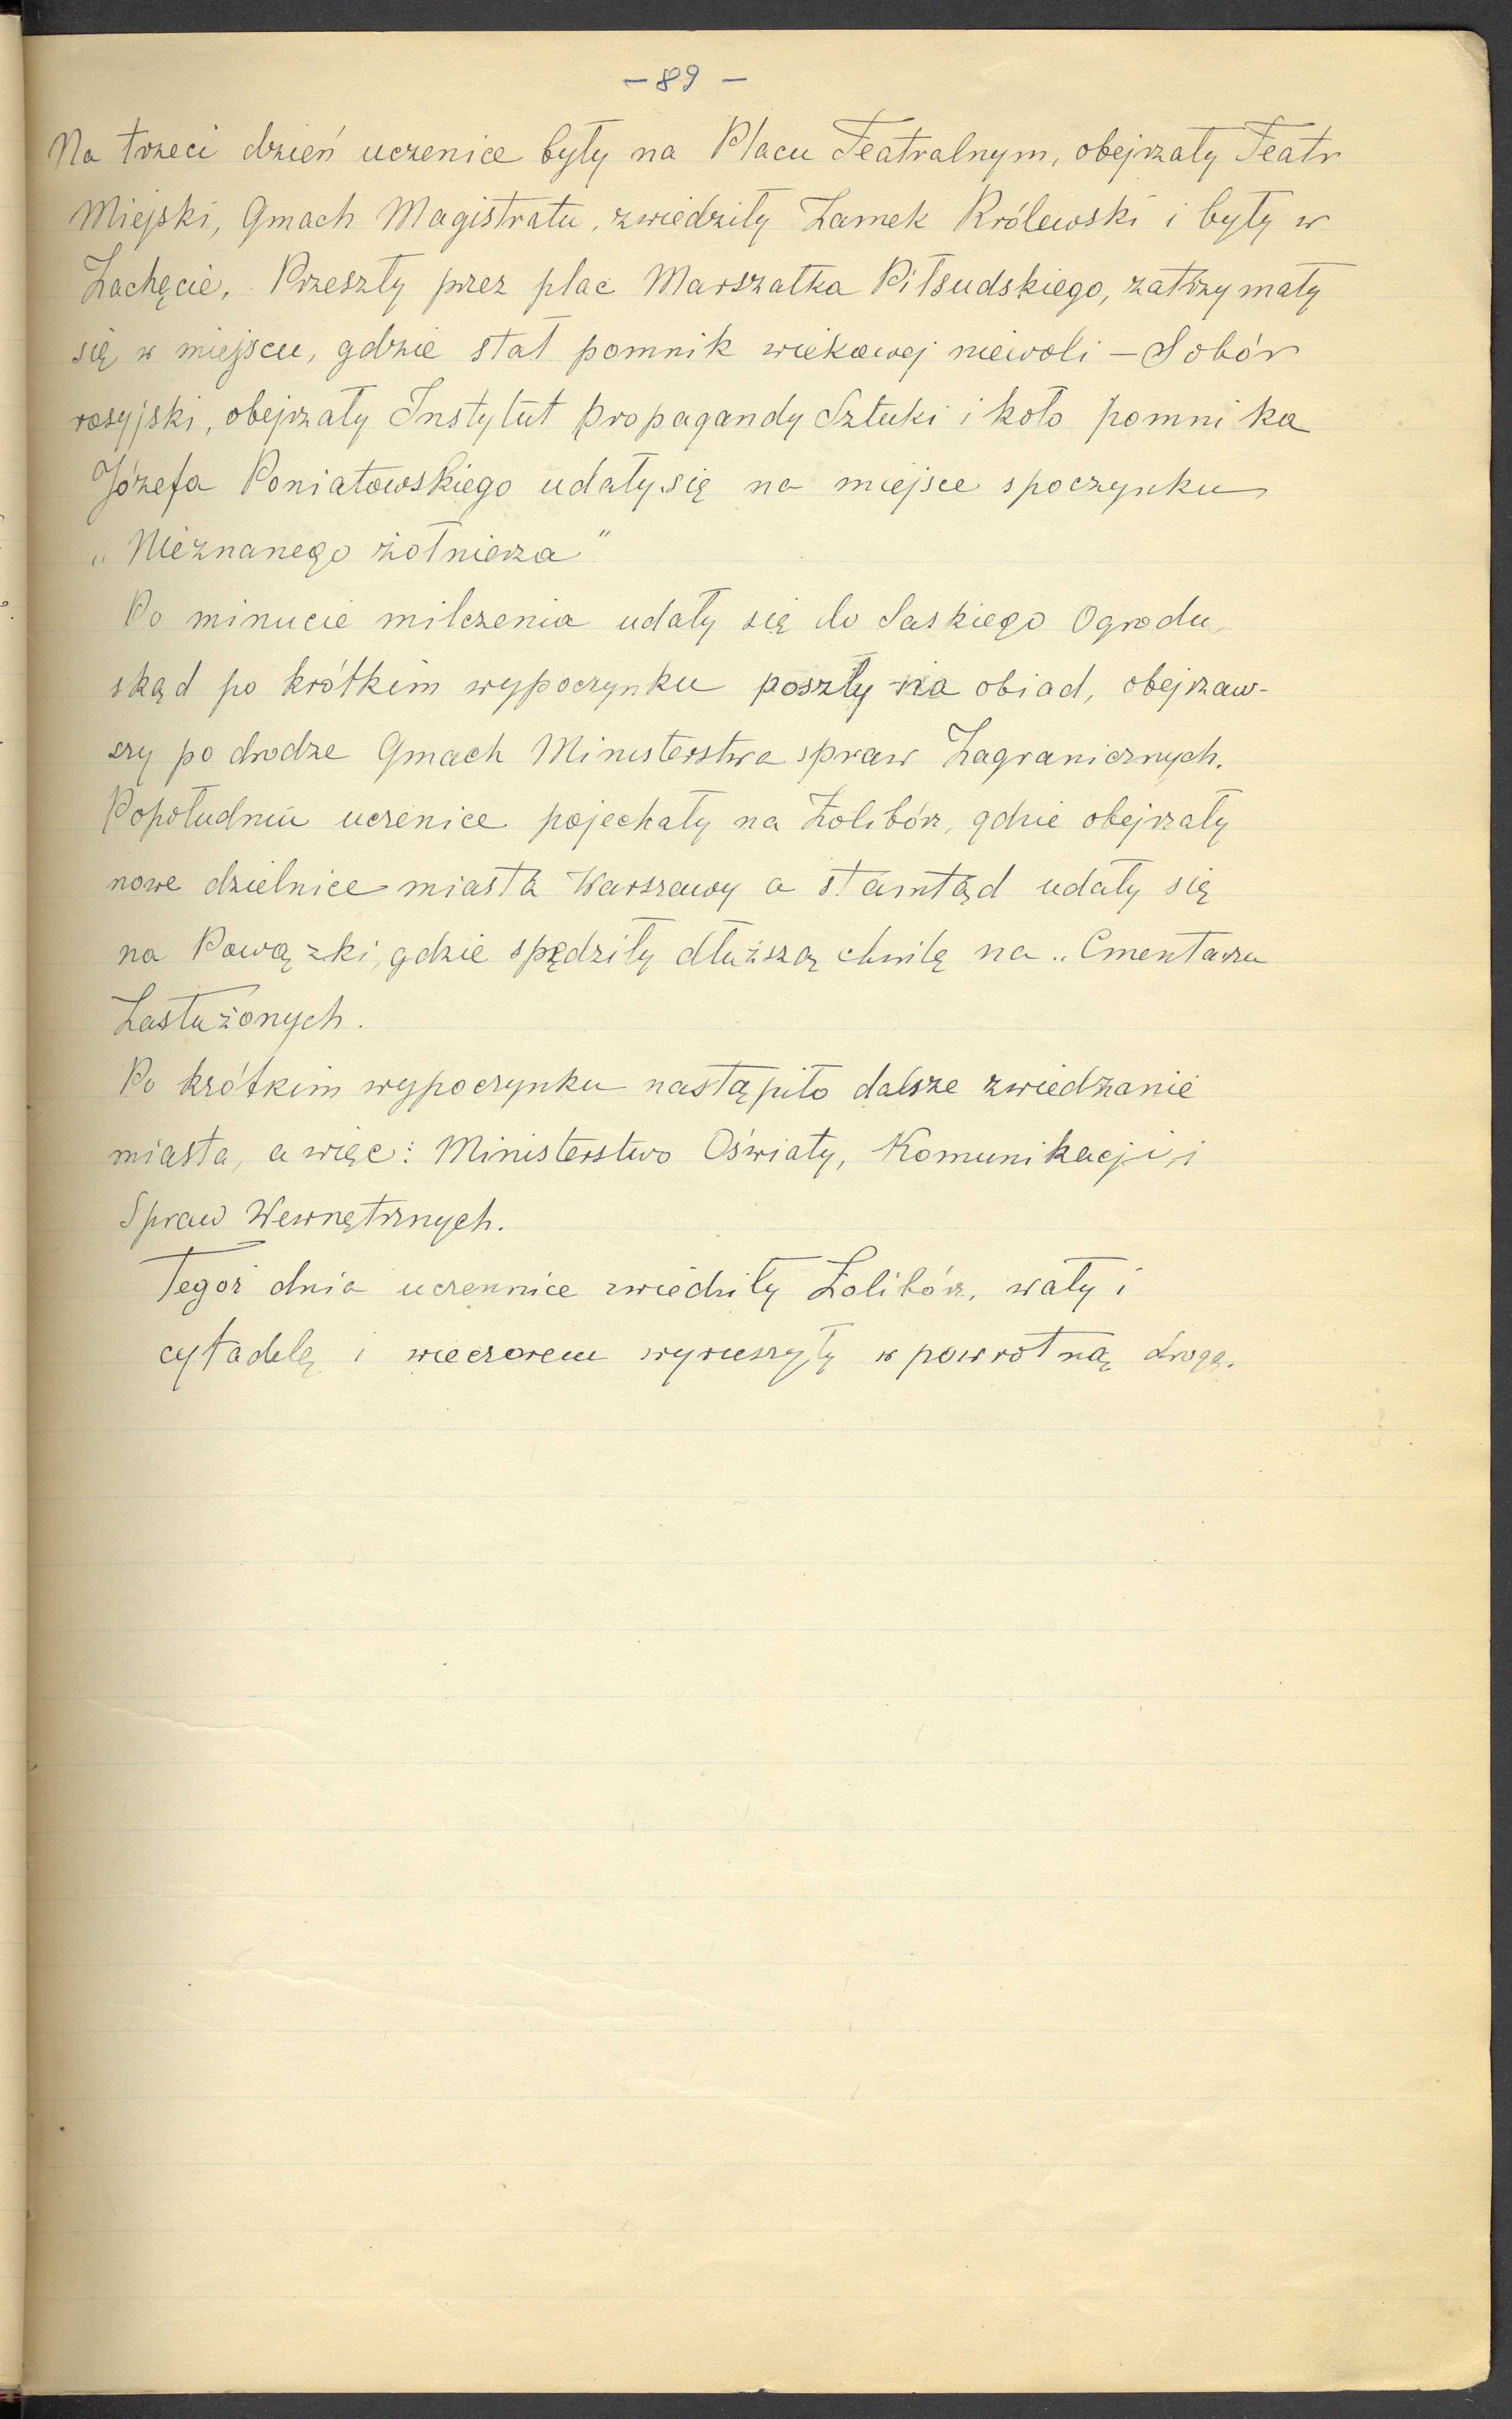 – 89 –
Na trzeci dzień uczenice były na Placu Teatralnym, obejrzały Teatr
Miejski, Gmach Magistratu, zwiedziły Zamek Królewski i były w
Zachęcie. Przeszły przez plac Marszałka Piłsudskiego, zatrzymały
się w miejscu, gdzie stał pomnik wiekowej niewoli – Sobór
rosyjski, obejrzały Instytut Propagandy Sztuki i koło pomnika
Józefa Poniatowskiego udały się na miejsce spoczynku
„Nieznanego żołnierza"
Po minucie milczenia udały się do Saskiego Ogrodu
skąd po krótkim wypoczynku poszły na obiad, obejrzaw-
szy po drodze Gmach Ministerstwa spraw Zagranicznych.
Popołudniu uczenice pojechały na Żolibórz, gdzie obejrzały
nowe dzielnice miasta Warszawy a stamtąd udały się
na Powązki, gdzie spędziły dłuższą chwilę na „Cmentarzu
Zasłużonych.
Po krótkim wypoczynku nastąpiło dalsze zwiedzanie
miasta, a więc: Ministerstwo Oświaty, Komunikacji i
Spraw Wewnętrznych.
Tegoż dnia uczennice zwiedziły Żolibórz, wały i
cytadelę i wieczorem wyruszyły w powrotną drogę.